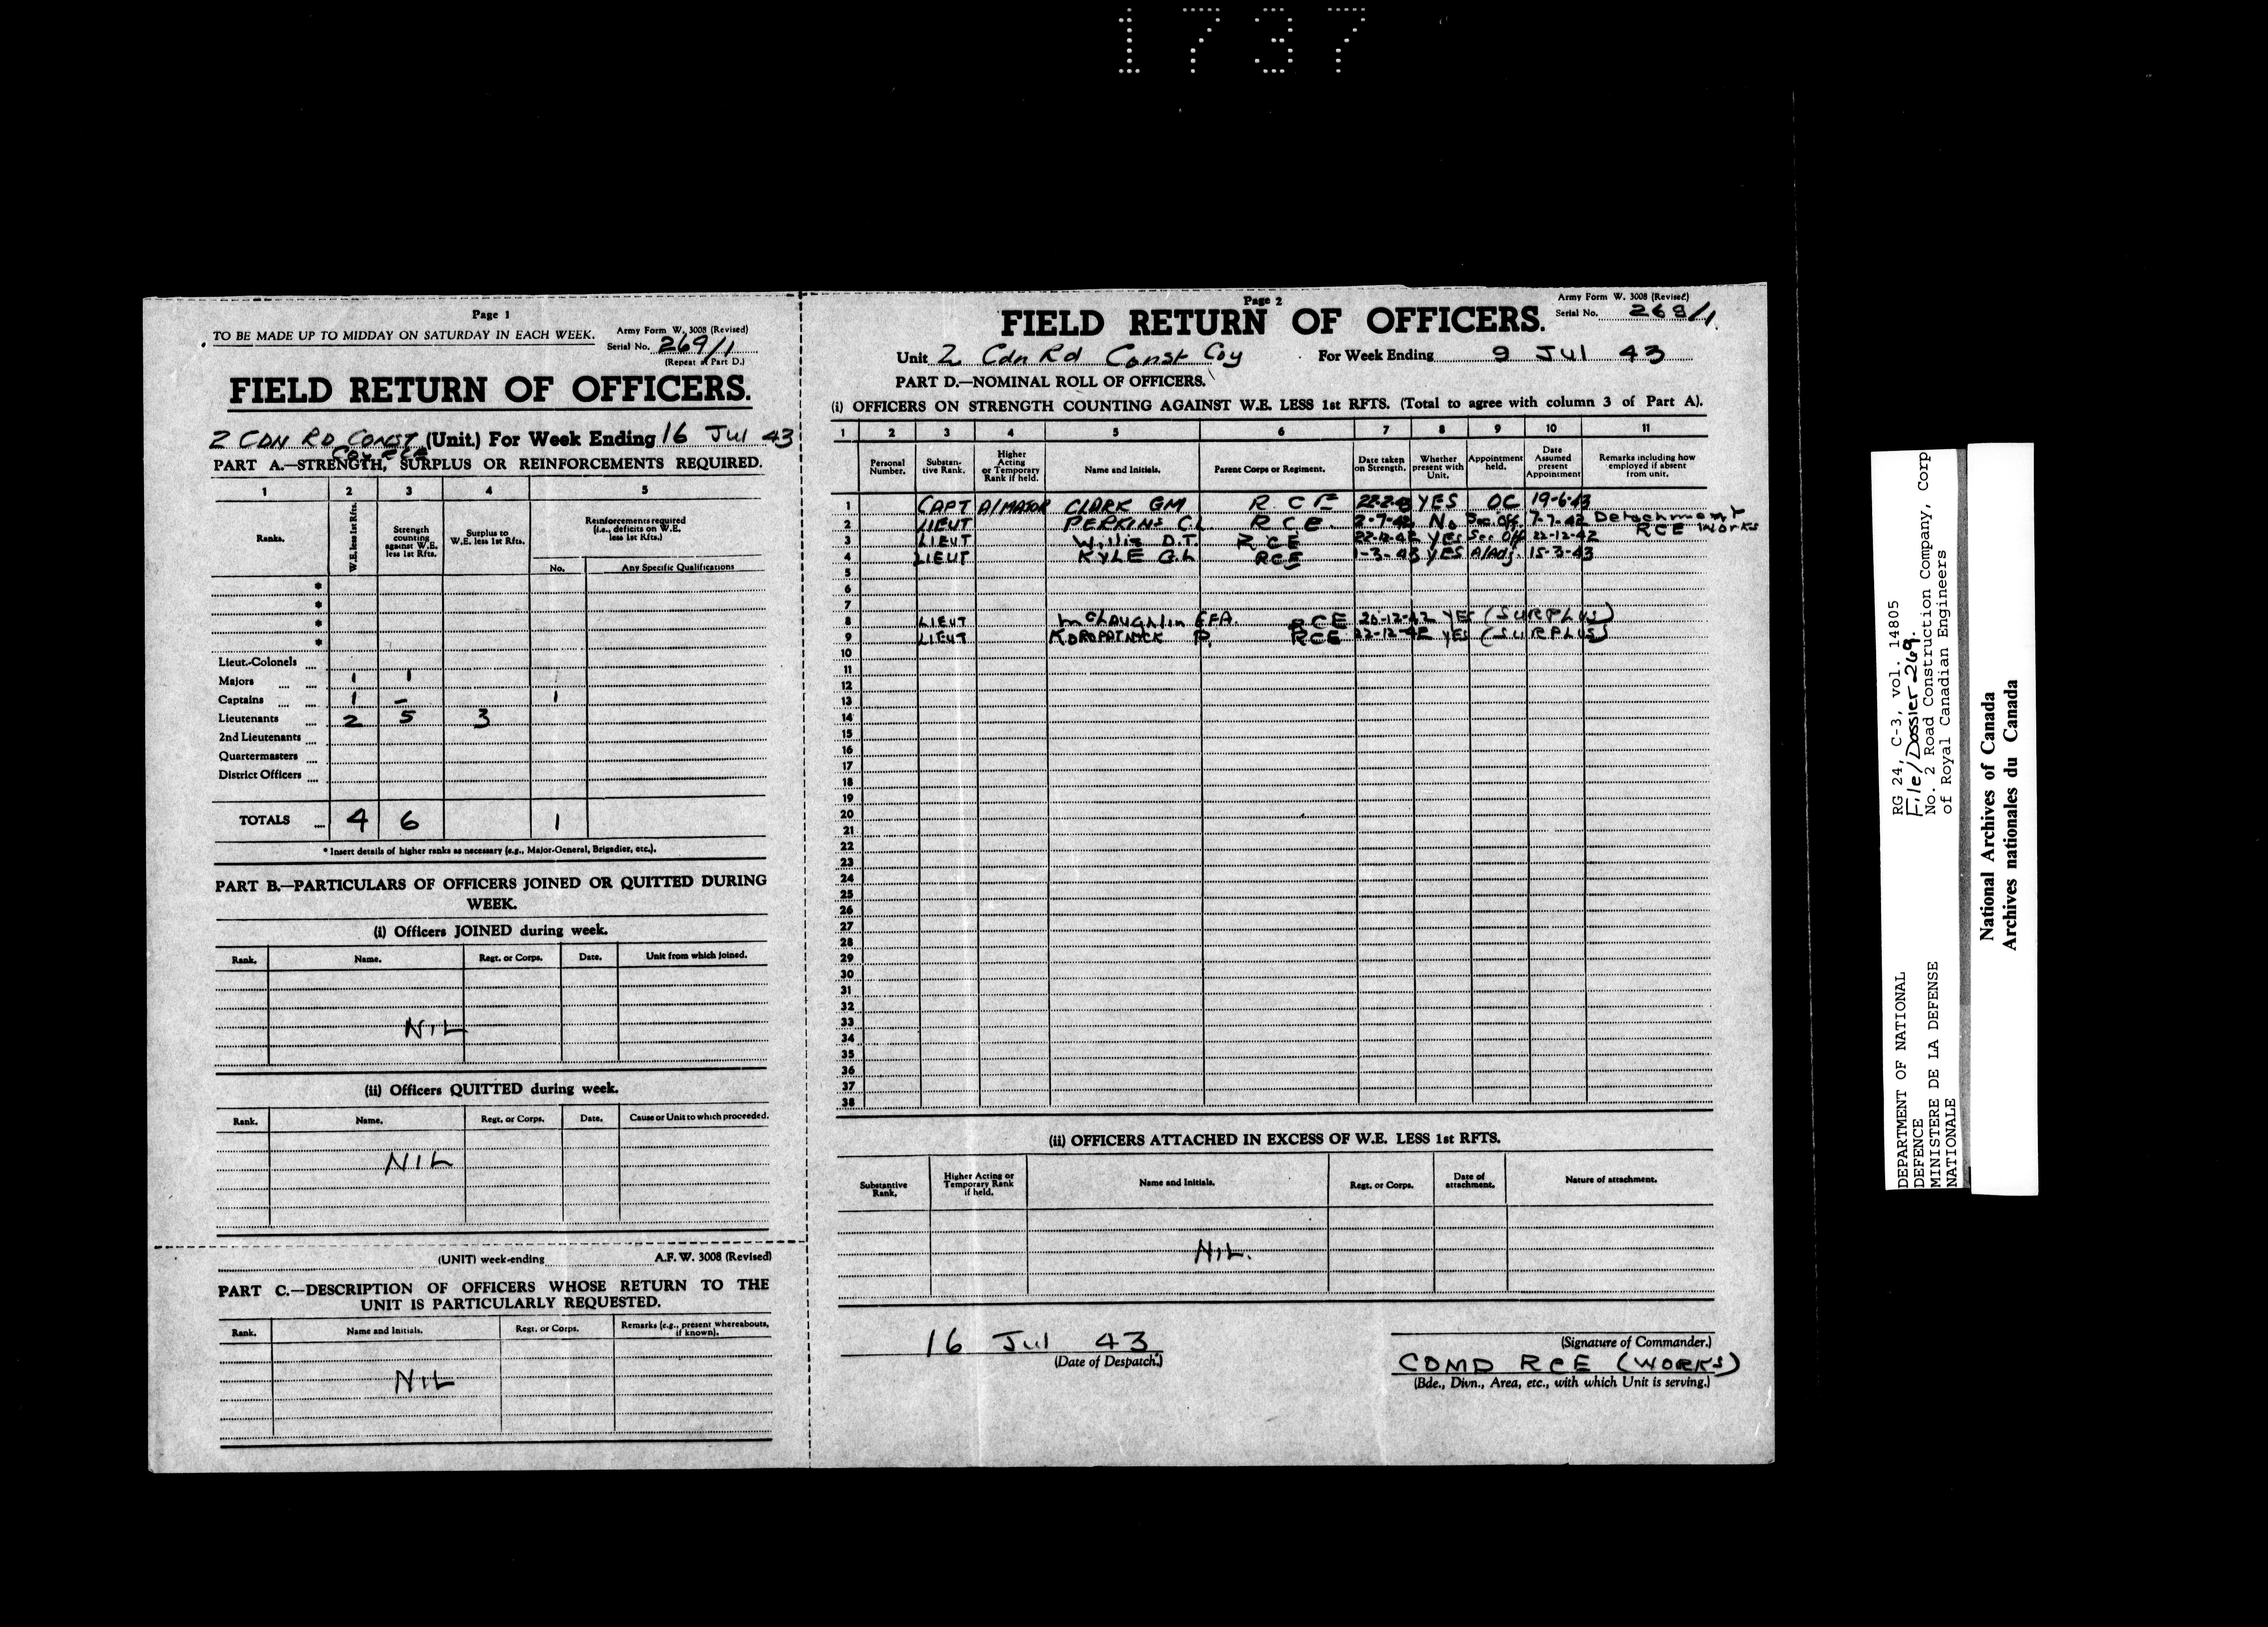 1737
Page 1
TO BE MADE UP TO MIDDAY ON SATURDAY IN EACH WEEK.
Army Form W. 3008 (Revised)
Serial No. 269/1
(Repeat in Part D.)
FIELD RETURN OF OFFICERS.
2 CDN RD CONST (Unit.) For Week Ending 16 Jul 43
Coy RCE
PART A.—STRENGTH, SURPLUS OR REINFORCEMENTS REQUIRED.
1 2 3 4 5
Ranks. W.E. less 1st Rfts. Strength counting against W.E. less 1st Rfts. Surplus to W.E. less 1st Rfts. Reinforcements required (i.e., deficits on W.E. less 1st Rfts.)
No. Any Specific Qualifications
*
*
*
*
Lieut.-Colonels ...
Majors ... ... 1 1
Captains ... ... 1 – 1
Lieutenants ... 2 5 3
2nd Lieutenants ...
Quartermasters ...
District Officers ...
TOTALS ... 4 6 1
* Insert details of higher ranks as necessary (e.g., Major-General, Brigadier, etc.).
PART B.—PARTICULARS OF OFFICERS JOINED OR QUITTED DURING
WEEK.
(i) Officers JOINED during week.
Rank. Name. Regt. or Corps. Date. Unit from which joined.
NIL
(ii) Officers QUITTED during week.
Rank. Name. Regt. or Corps. Date. Cause or Unit to which proceeded.
NIL
(UNIT) week-ending A.F. W. 3008 (Revised)
PART C.—DESCRIPTION OF OFFICERS WHOSE RETURN TO THE
UNIT IS PARTICULARLY REQUESTED.
Rank. Name and Initials. Regt. or Corps. Remarks (e.g., present whereabouts, if known).
NIL
Page 2
Army Form W. 3008 (Revised)
Serial No. 269/1
FIELD RETURN OF OFFICERS.
Unit 2 Cdn Rd Const Coy For Week Ending 9 Jul 43
PART D.—NOMINAL ROLL OF OFFICERS.
(i) OFFICERS ON STRENGTH COUNTING AGAINST W.E. LESS 1st RFTS. (Total to agree with column 3 of Part A).
1 2 3 4 5 6 7 8 9 10 11
Personal Number. Substantive Rank. Higher Acting or Temporary Rank if held. Name and Initials. Parent Corps or Regiment. Date taken on Strength. Whether present with Unit. Appointment held. Date Assumed present Appointment Remarks including how employed if absent from unit.
1 CAPT A/MAJOR CLARK GM R.C.E YES OC 19-6-43
2 LIEUT PERKINS C.L RCE. 2-7-42 No Sec. Off. 7-7-42 Detachment
RCE Works
3 LIEUT Willis D.T. RCE 22-12-42 Yes Sec Off 22-12-42
4 LIEUT KYLE G.L RCE 1-3-43 YES A/Adj. 15-3-43
5
6
7
8 LIEUT McLAughlin EFA. RCE 20-12-42 YES (SURPLUS)
9 LIEUT KOROPATNICK P. RCE 22-12-42 YES (SURPLUS)
10
11
12
13
14
15
16
17
18
19
20
21
22
23
24
25
26
27
28
29
30
31
32
33
34
35
36
37
38
(ii) OFFICERS ATTACHED IN EXCESS OF W.E. LESS 1st RFTS.
Substantive Rank. Higher Acting or Temporary Rank if held. Name and Initials. Regt. or Corps. Date of attachment. Nature of attachment.
NIL.
16 Jul 43
(Date of Despatch.)
(Signature of Commander.)
COMD RCE (WORKS)
(Bde., Divn., Area, etc., with which Unit is serving.)
DEPARTMENT OF NATIONAL
DEFENCE
MINISTERE DE LA DEFENSE
NATIONALE
RG 24, C-3, vol. 14805
File/Dossier 269.
No. 2 Road Construction Company, Corp
of Royal Canadian Engineers
National Archives of Canada
Archives nationales du Canada